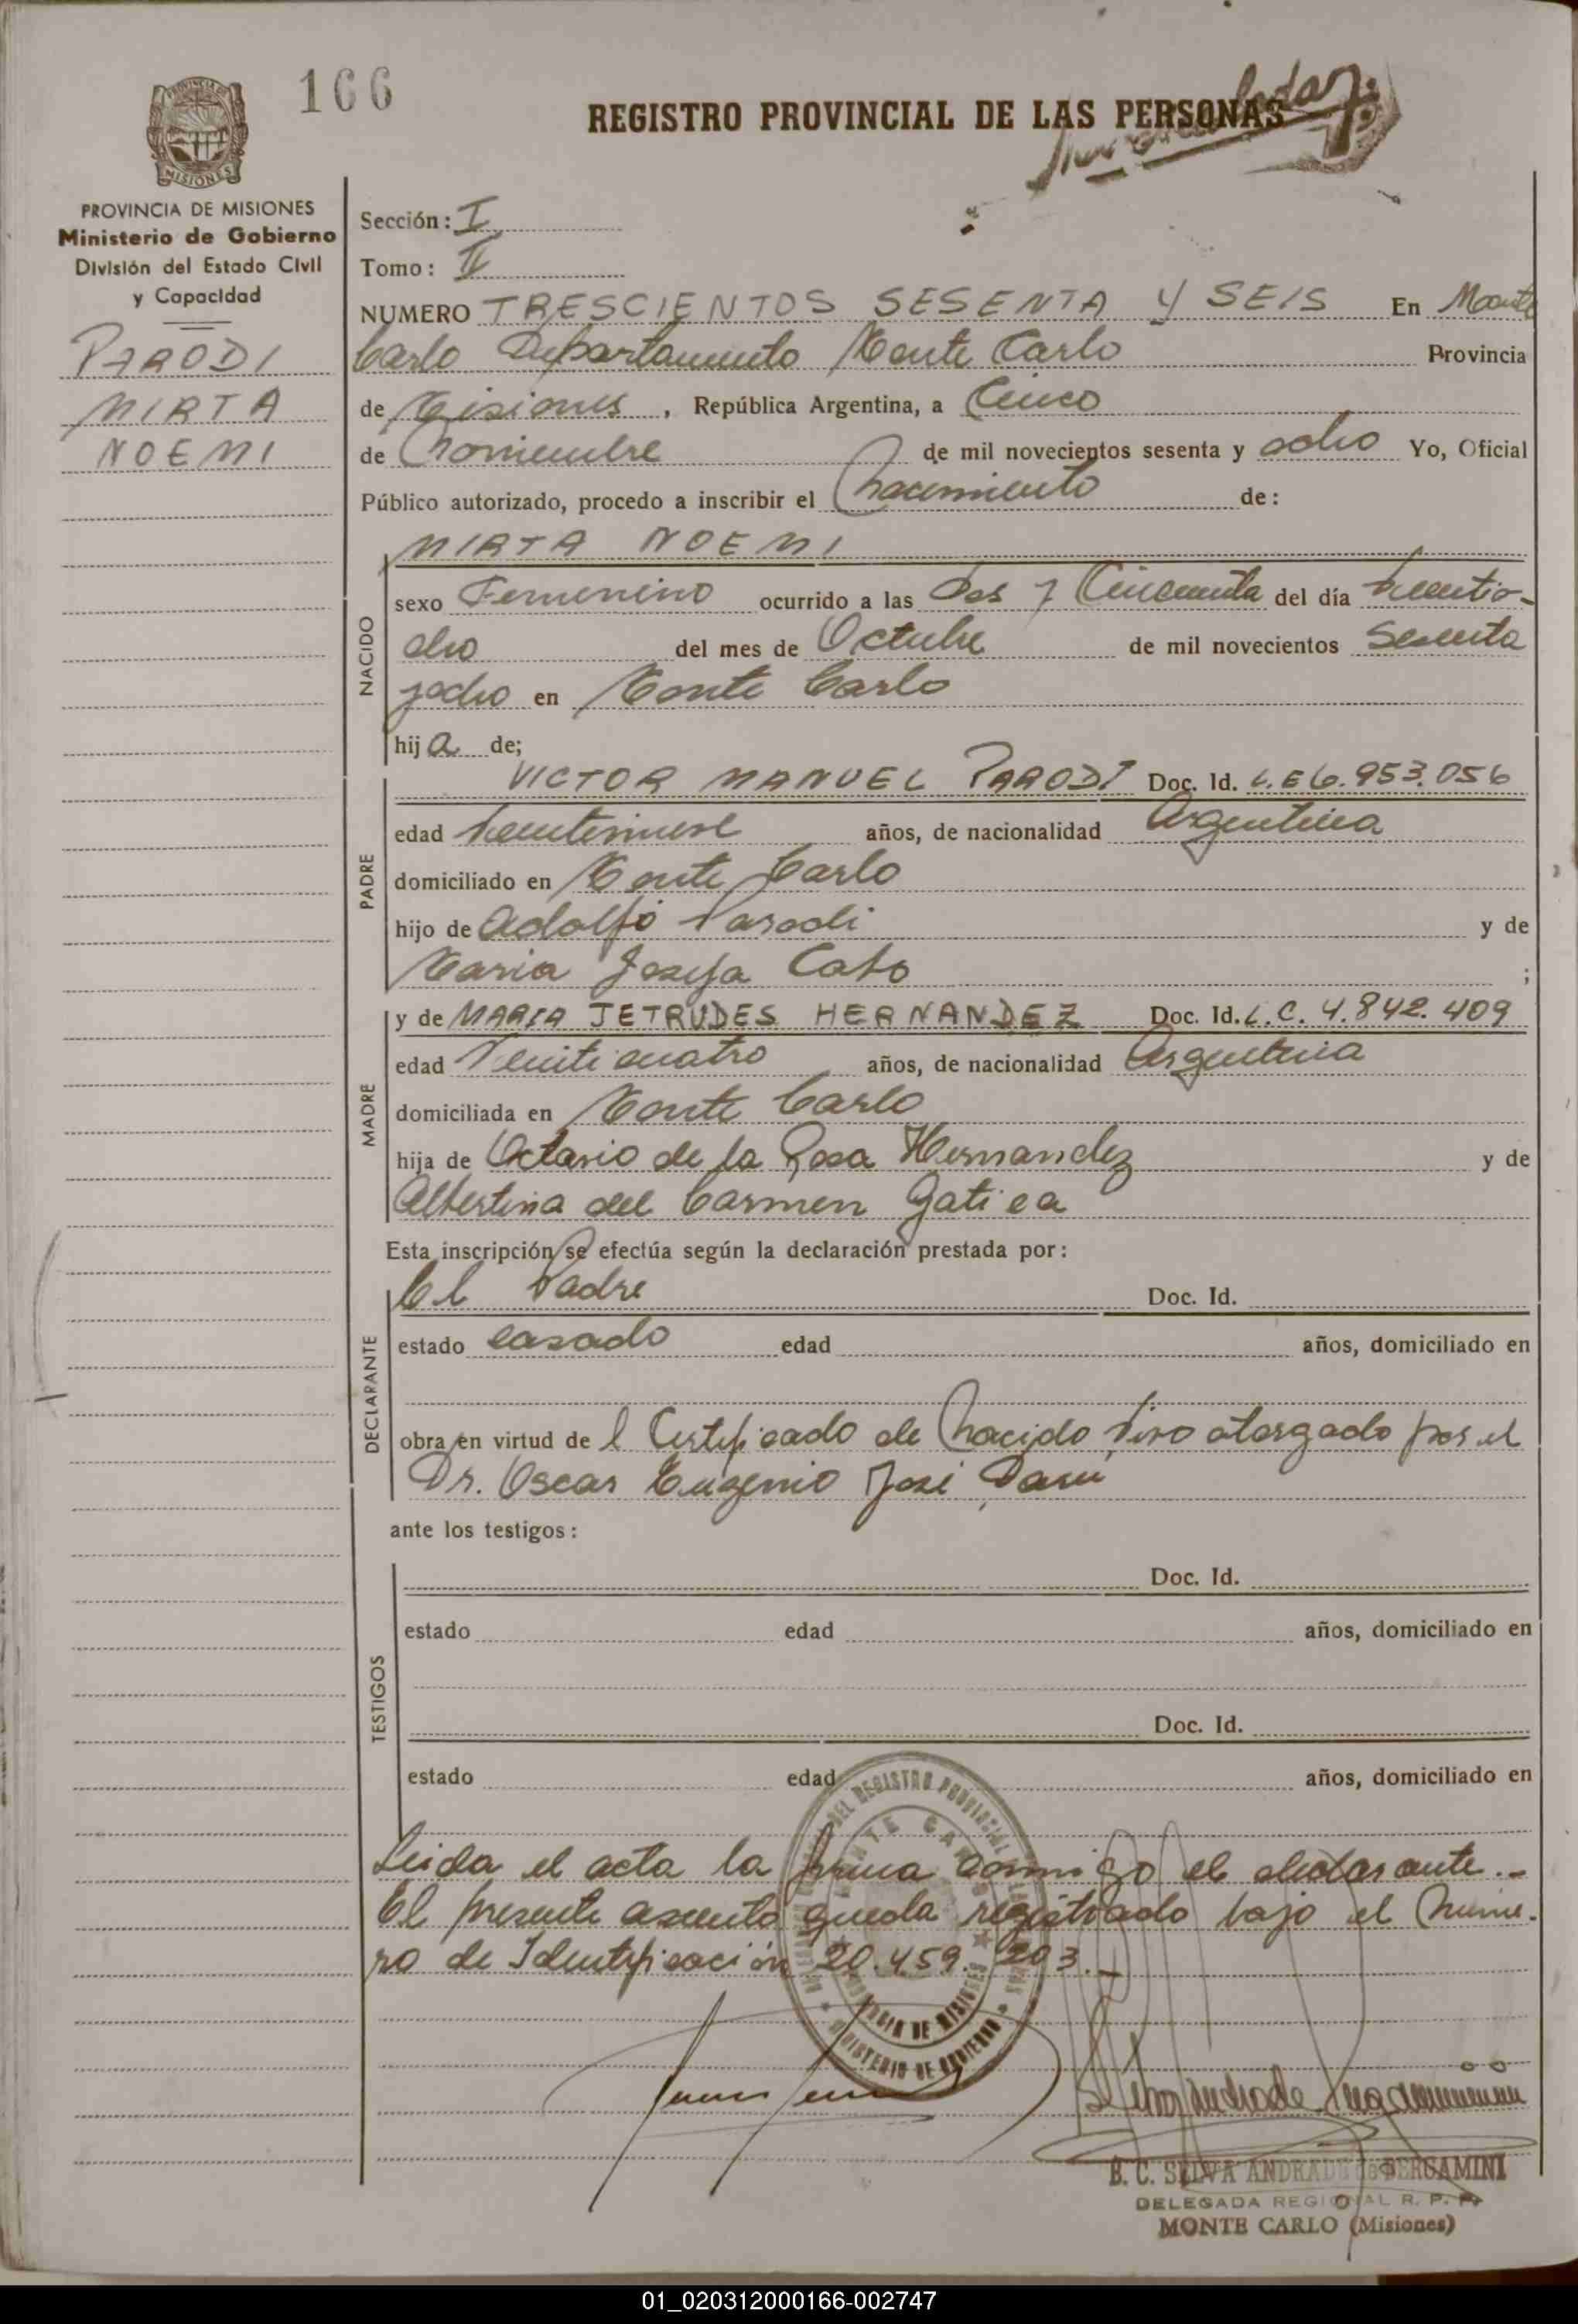 166
REGISTRO PROVINCIAL DE LAS PERSONAS
MISIONES
PROVINCIA DE MISIONES
Ministerio de Gobierno
División del Estado Civil
y Capacidad
PARODI
MIRTA
NOEMI
Sección: I
Tomo: II
NUMERO TRESCIENTOS SESENTA Y SEIS En Monte
Carlo Departamento Monte Carlo Provincia
de Misiones, República Argentina, a Cinco
de Noviembre de mil novecientos sesenta y ocho Yo, Oficial
Público autorizado, procedo a inscribir el Nacimiento de:
MIRTA NOEMI
NACIDO
sexo Femenino ocurrido a las Dos y Cincuenta del día Veintio-
cho del mes de Octubre de mil novecientos Sesenta
y ocho en Monte Carlo
hija de;
PADRE
VICTOR MANUEL PARODI Doc. Id. L.E 6.953.056
edad Veintinueve años, de nacionalidad Argentina
domiciliado en Monte Carlo
hijo de Adolfo Parodi y de
Maria Josefa Cato ;
MADRE
y de MARIA JETRUDES HERNANDEZ Doc. Id. L.C. 4.842.409
edad Veinticuatro años, de nacionalidad Argentina
domiciliada en Monte Carlo
hija de Octavio de la Rosa Hernandez y de
Albertina del Carmen Gatica
Esta inscripción se efectúa según la declaración prestada por:
DECLARANTE
El Padre Doc. Id.
estado casado edad años, domiciliado en
obra en virtud de l Certificado de Nacido Vivo otorgado por el
Dr. Oscar Eugenio José Darú
ante los testigos:
TESTIGOS
Doc. Id.
estado edad años, domiciliado en
Doc. Id.
estado edad años, domiciliado en
Leida el acta la firma conmigo el declarante.-
El presente asiento queda registrado bajo el Núme-
ro de Identificación 20.459.203.-
DEL REGISTRO PROVINCIAL
MONTE CARLO
PROVINCIA DE MISIONES
MINISTERIO DE GOBIERNO
B. C. SELVA ANDRADE de BERGAMINI
DELEGADA REGIONAL R. P. P.
MONTE CARLO (Misiones)
01_020312000166-002747